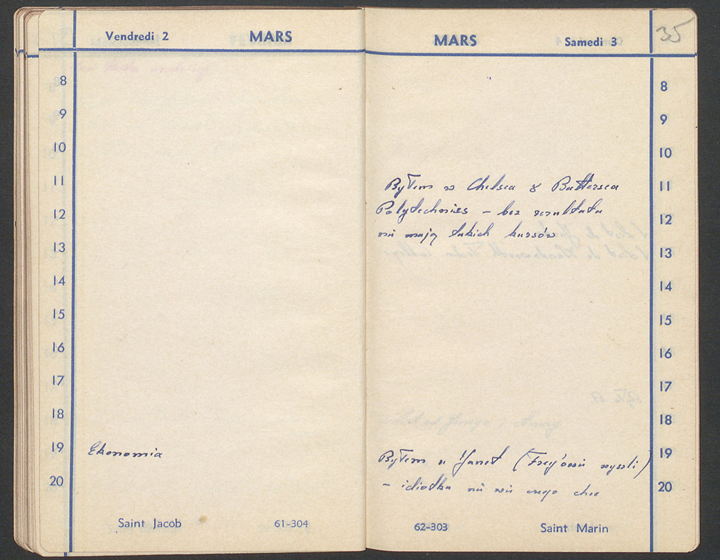 Vendredi 2 MARS
8
9
10
11
12
13
14
15
16
17
18
19 Ekonomia
20
Saint Jacob 61-304
MARS Samedi 3 35
8
9
10
11 Byłem w Chelsea & Battersea
Polytechnics – bez rezultatu
12 nie mają takich kursów
13
14
15
16
17
18
19 Byłem u Janet (
20 – idiotka nie wie czego chce
62-303 Saint Marin